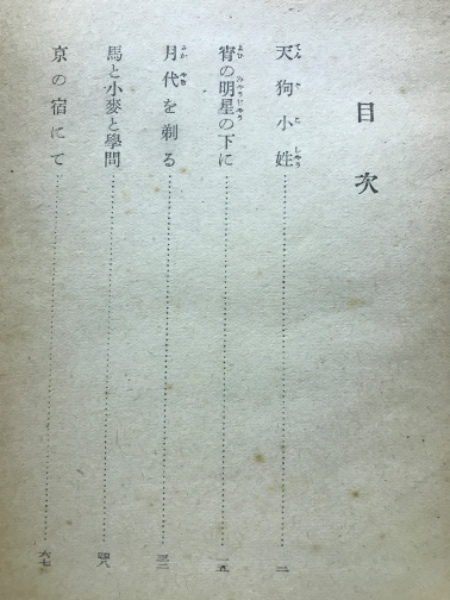 目次
天狗小姓……二
宵の明星の下に……一五
月代を剃る……三二
馬と小麥と學問……四八
京の宿にて……六七